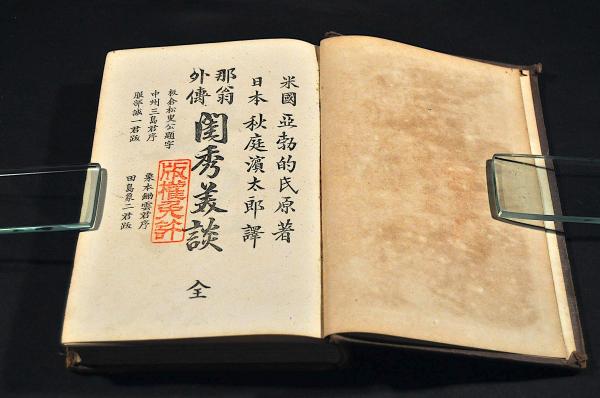 米國 亞勃的氏原著
日本 秋庭濱太郎譯
那翁外傳 閨秀美談 全
板倉松里公題字
中州三島君序
服部誠一君跋
栗本鋤雲君序
田島象二君跋
版權免許